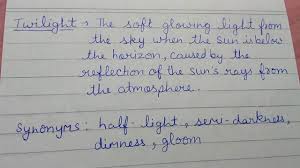 Twilight → The soft glowing light from
the sky when the sun is below
the horizon, caused by the
reflection of the sun's rays from
the atmosphere.
Synonyms: half-light, semi-darkness,
dimness, gloom